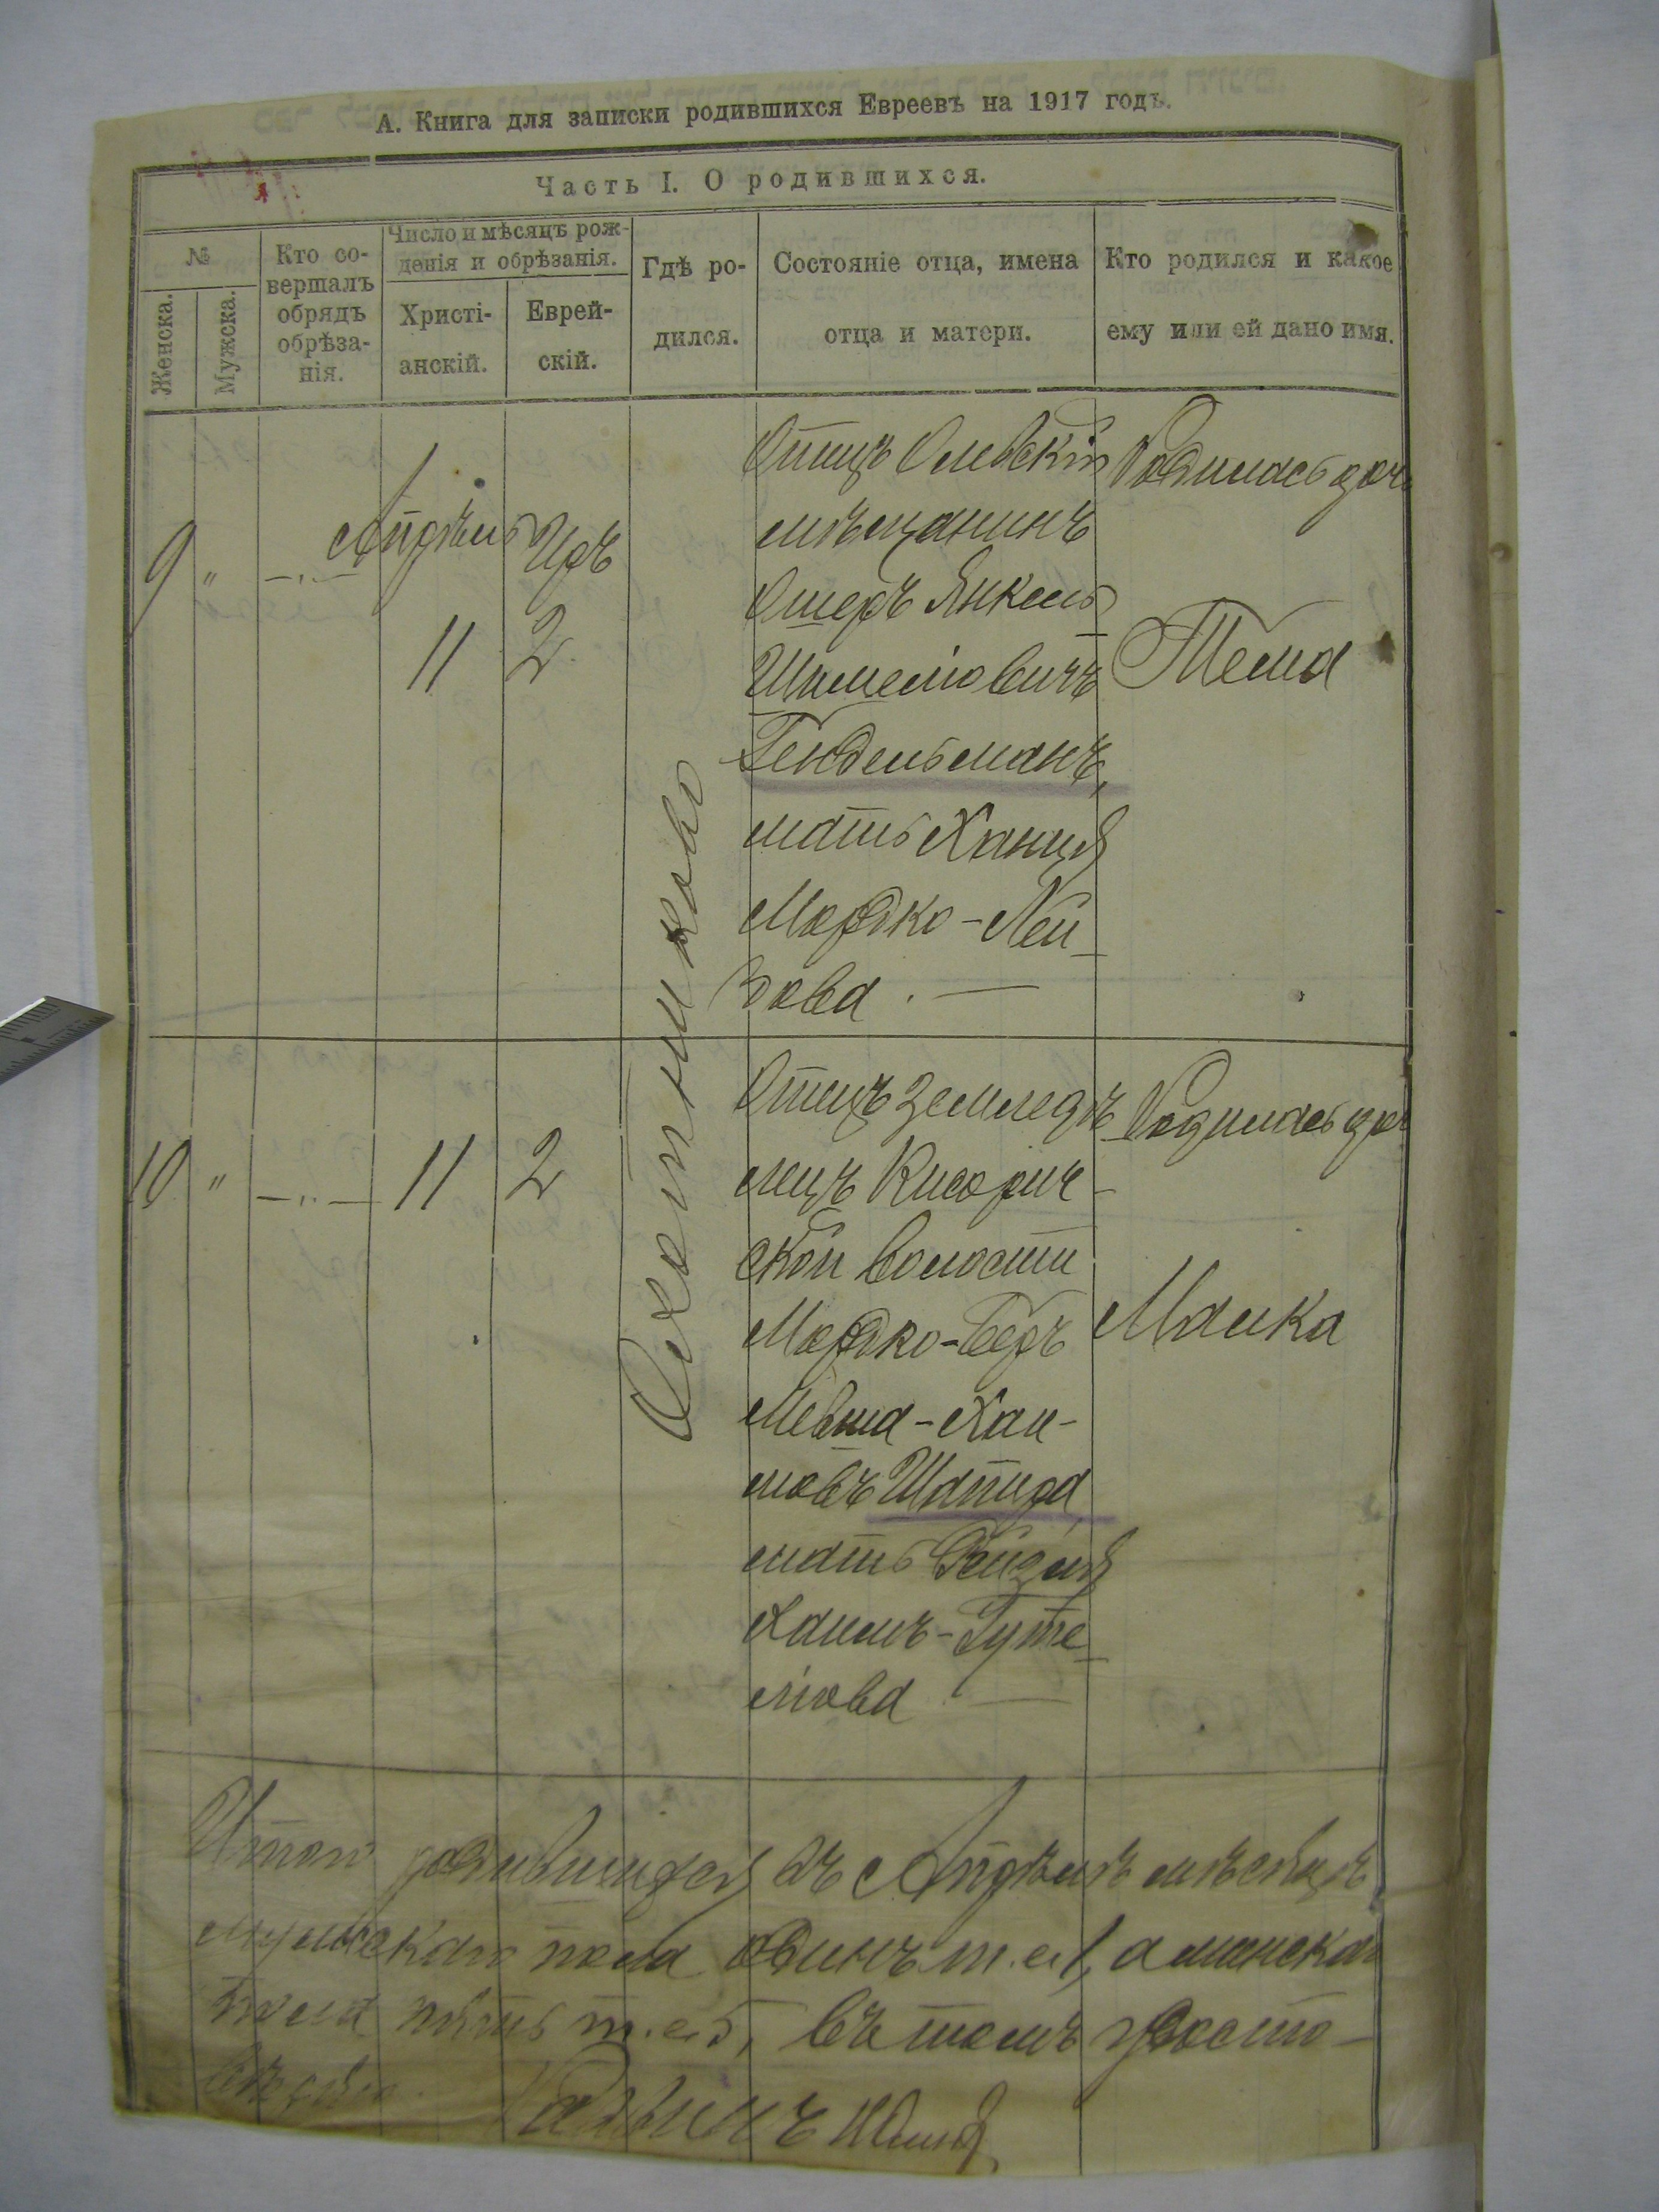 А. Книга для записки родившихся Евреевъ на 1917 годъ.
Часть I. О родившихся.
№
Женска.
Мужска.
Кто со-
вершалъ
обрядъ
обрѣза-
нія.
Число и мѣсяцъ рож-
денія и обрѣзанія.
Христі-
анскій.
Еврей-
скій.
Гдѣ ро-
дился.
Состояніе отца, имена
отца и матери.
Кто родился и какое
ему или ей дано имя.
9 " —"—
Апрѣль
11
Иръ
2
Отецъ Олевскій
мѣщанинъ
Ошеръ Янкель
Шмеліовичъ
Гендельманъ,
мать Ханця
Мордко-Лей
зова . —
Родилась дочь
Тема
10 " —"— 11 2
Отецъ Земледѣ
лецъ Кисорич-
ской волости
Мордко-Беръ
Мевша-Хаи-
мовъ Шапира,
мать Рейзля
Хаимъ-Гуте
ліова . —
Родилась доч
Малка
Итого родившихся въ Апрѣлѣ мѣсяцѣ
мужскаго пола одинъ т.е. 1, а женскаго
пола пять т.е. 5, въ томъ удосто-
вѣряю.
Раввинъ